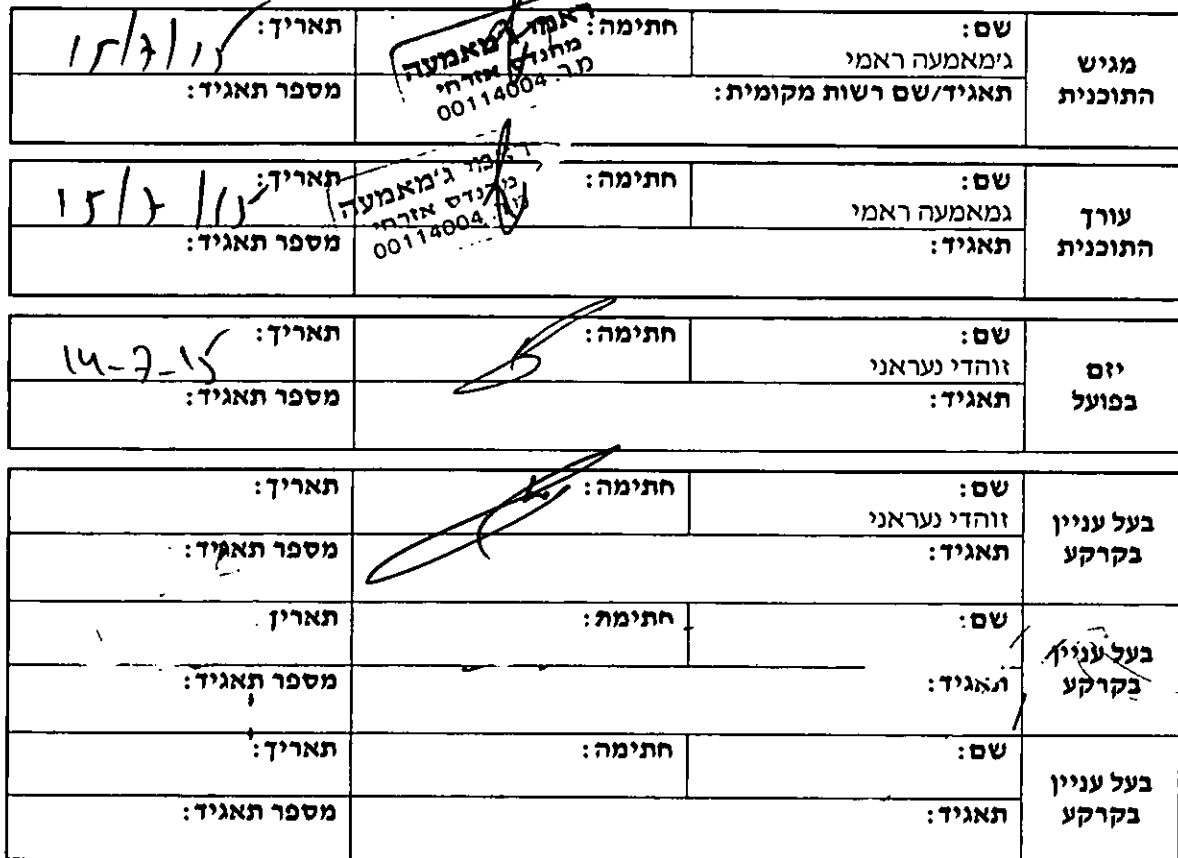 מגיש
התוכנית
שם:
ג׳מאמעה ראמי
חתימה:
ראמי ג'מאמעה
מהנדס אזרחי
מ.ר. 00114004
תאריך:
15/7/15
תאגיד/שם רשות מקומית:
מספר תאגיד:
עורך
התוכנית
שם:
גמאמעה ראמי
חתימה:
ראמי ג'מאמעה
מהנדס אזרחי
מ.ר. 00114004
תאריך:
15/7/15
תאגיד:
מספר תאגיד:
יזם
בפועל
שם:
זוהדי נעראני
חתימה:
תאריך:
14-7-15
תאגיד:
מספר תאגיד:
בעל עניין
בקרקע
שם:
זוהדי נעראני
חתימה:
תאריך:
תאגיד:
מספר תאגיד:
בעל עניין
בקרקע
שם:
חתימה:
תאריך
תאגיד:
מספר תאגיד:
בעל עניין
בקרקע
שם:
חתימה:
תאריך:
תאגיד:
מספר תאגיד: